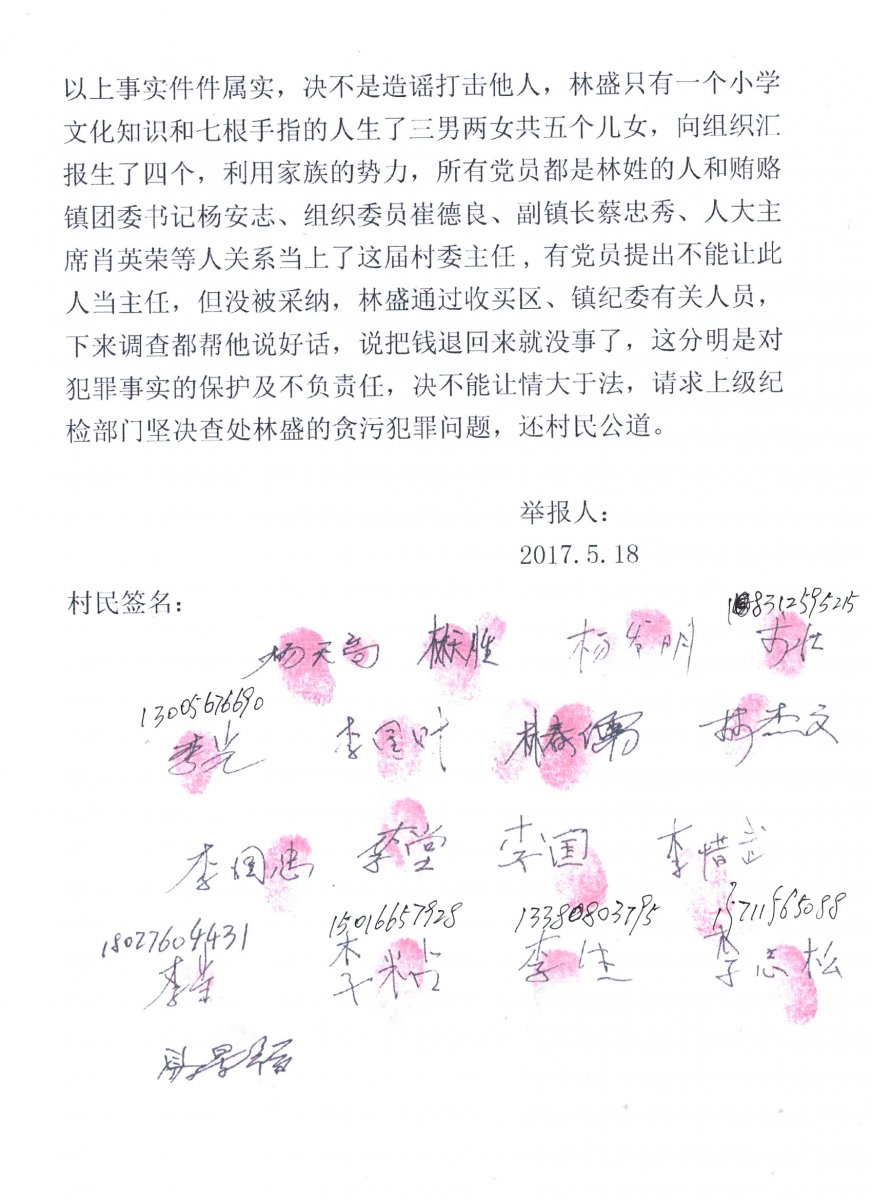 以上事实件件属实，决不是造谣打击他人，林盛只有一个小学
文化知识和七根手指的人生了三男两女共五个儿女，向组织汇
报生了四个，利用家族的势力，所有党员都是林姓的人和贿赂
镇团委书记杨安志、组织委员崔德良、副镇长蔡忠秀、人大主
席肖英荣等人关系当上了这届村委主任，有党员提出不能让此
人当主任，但没被采纳，林盛通过收买区、镇纪委有关人员，
下来调查都帮他说好话，说把钱退回来就没事了，这分明是对
犯罪事实的保护及不负责任，决不能让情大于法，请求上级纪
检部门坚决查处林盛的贪污犯罪问题，还村民公道。
举报人：
2017.5.18
村民签名：
18312595215
杨天高 杨发明
13005676690
李国叶 林杰文
李国忠 李堂 李国 李惜武
18027604431 15016657928 13380803795 15711565088
李志松